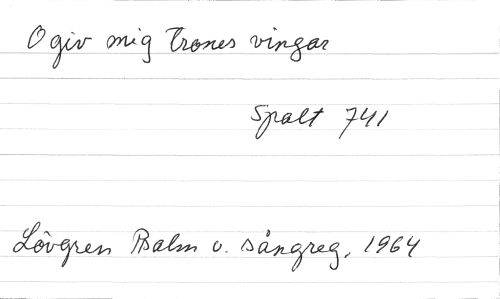 O giv mig Trones vingar
Spalt 741
Lövgren Psalm o. sångreg. 1964